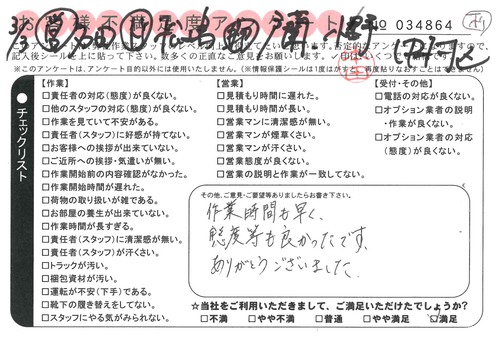 お客様不満足度アンケート
No 034864
記入後シールを上に貼って下さい。数多くの正直なご意見をお願いします。
※このアンケートは、アンケート目的以外には使用いたしません。(※情報保護シールは1度はがすと再度貼りなおすことはできません)
チェックリスト
【作業】
□責任者の対応(態度)が良くない。
□他のスタッフの対応(態度)が良くない。
□作業を見ていて不安がある。
□責任者(スタッフ)に好感が持てない。
□お客様への挨拶が出来ていない。
□ご近所への挨拶・気遣いが無い。
□作業開始前の内容確認がなかった。
□作業開始時間が遅れた。
□荷物の取り扱いが雑である。
□お部屋の養生が出来ていない。
□作業時間が長すぎる。
□責任者(スタッフ)に清潔感が無い。
□責任者(スタッフ)が汗くさい。
□トラックが汚い。
□梱包資材が汚い。
□運転が不安(下手)である。
□靴下の履き替えをしてない。
□スタッフにやる気がみられない。
【営業】
□見積もり時間に遅れた。
□見積もり時間が長い。
□営業マンに清潔感が無い。
□営業マンが煙草くさい。
□営業マンが汗くさい。
□営業態度が良くない。
□営業の説明と作業が一致してない。
【受付・その他】
□電話の対応が良くない。
□オプション業者の説明
・作業が良くない。
□オプション業者の対応
(態度)が良くない。
その他、ご意見・ご要望等ありましたらお書き下さい。
作業時間も早く、
態度等も良かったです。
ありがとうございました。
☆当社をご利用いただきまして、ご満足いただけたでしょうか?
□不満 □やや不満 □普通 □やや満足 ☑満足